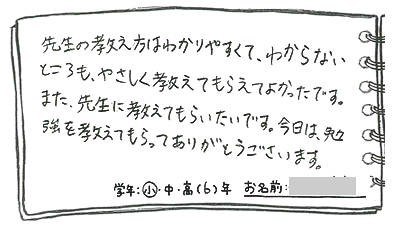 先生の教え方はわかりやすくて、わからない
ところも、やさしく教えてもらえてよかったです。
また、先生に教えてもらいたいです。今日は、勉
強を教えてもらってありがとうございます。
学年:小・中・高(6)年 お名前: